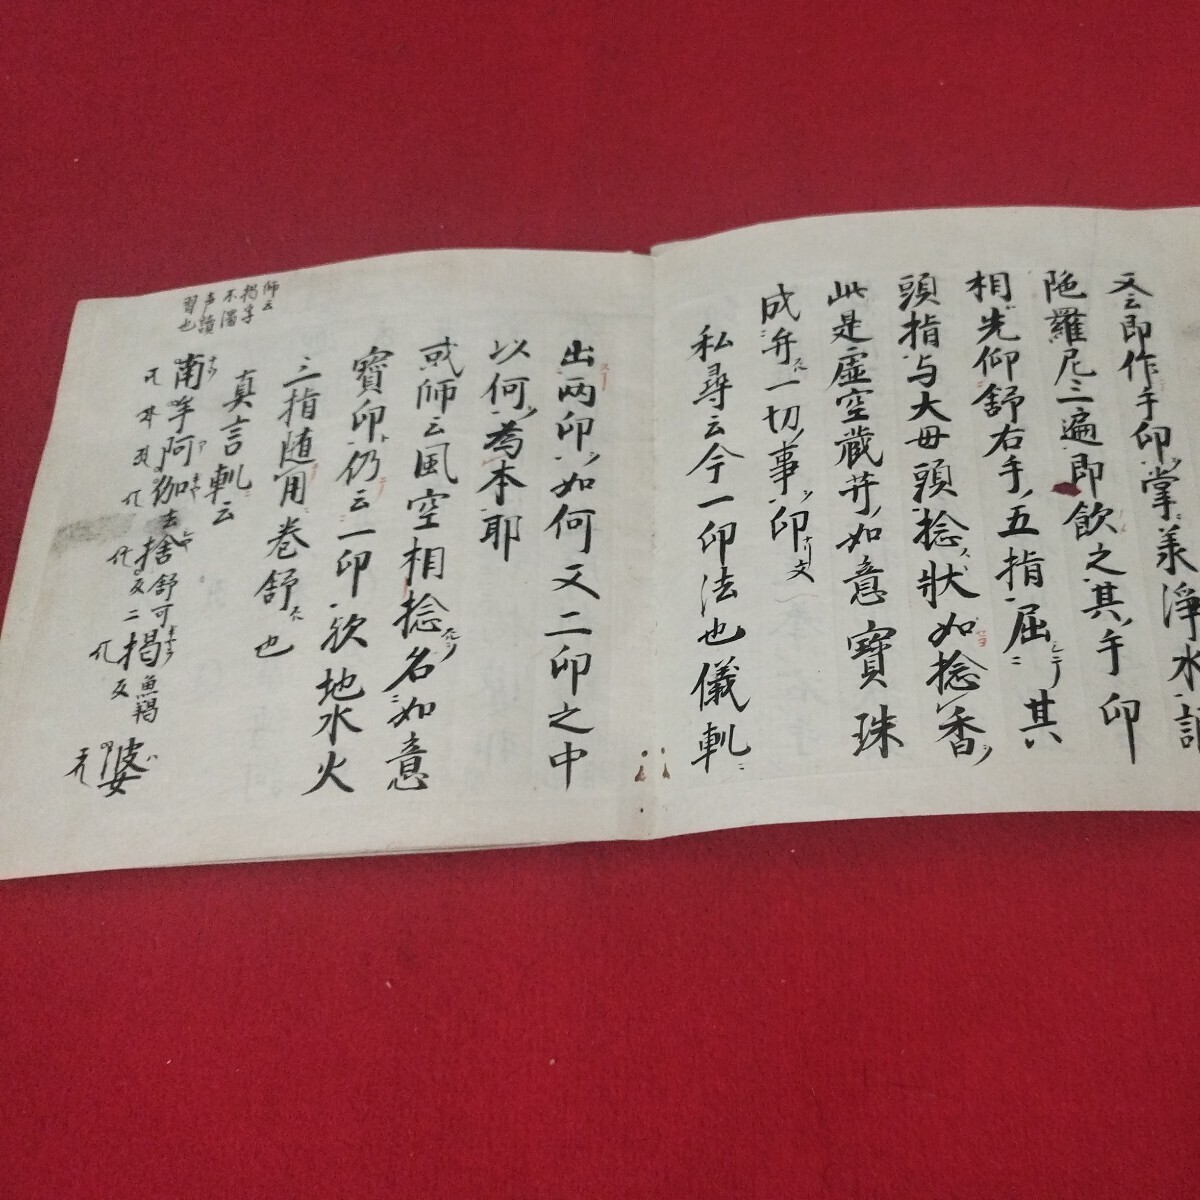 又云即作手印掌羕淨水誦
陁羅尼三遍即飲之其手印
相先仰舒右手五指屈其
頭指与大毋頭捻狀如捻香
此是虛空藏菩如意寶珠
成弁一切事印文
私尋云今一印法也儀軌
出兩印如何又二印之中
以何為本耶
或師云風空相捻名如意
寶印仍云一印欤地水火
三指随用卷舒也
真言軌云
師云
揭字
不濁
声讀
習也
南牟阿迦去捨舒可反二揭魚羯反婆